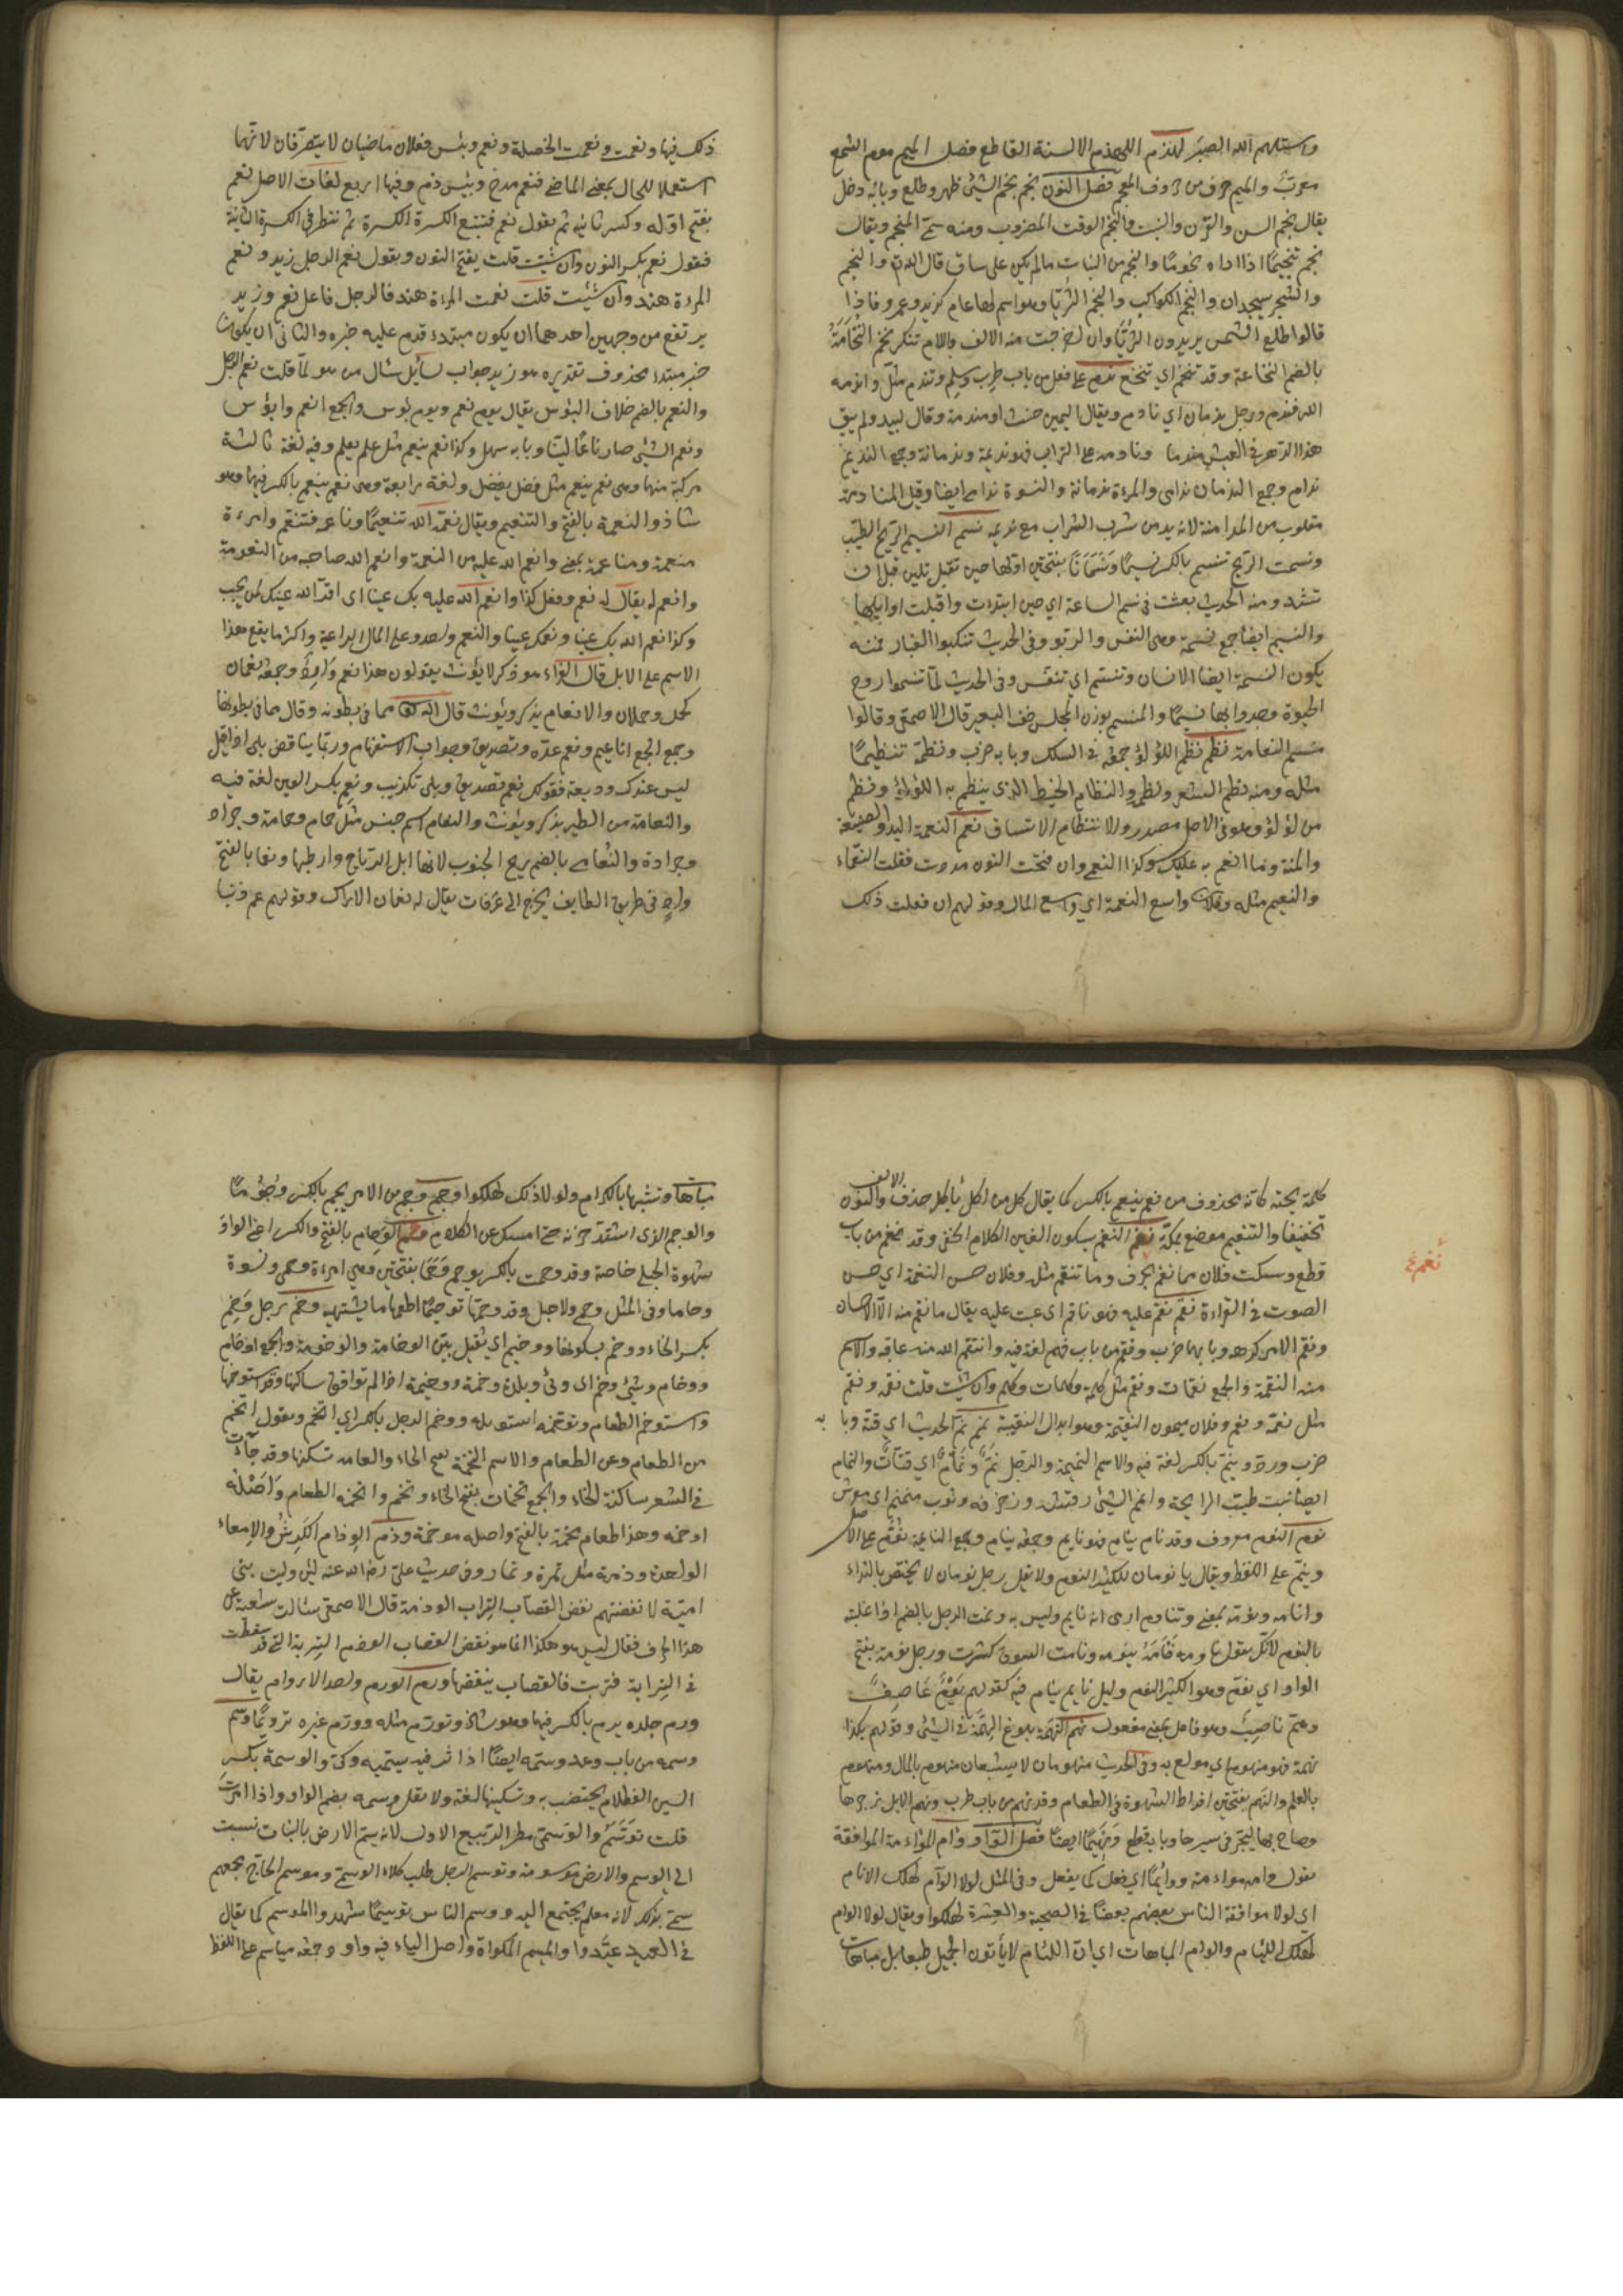 واستلهم الله الصبر لهذم اللهذم الالسنة القاطع فصل الميم موم الشمع
معرب والميم حرف من حروف المعجم فصل النون نجم نجم الشئ ظهر وطلع وبابه دخل
يقال نجم السن والقرن والنبت والنجم الوقت المضروب ومنه سمى المنجم ويقال
نجم تنجيما اذا اداه نجوما والنجم من النبات ما لم يكن على ساق قال الله والنجم
والشجر يسجدان والنجم الكواكب والنجم الثريا وهو اسم لها عام كزيد وعمرو فاذا
قالوا طلع النجم يريدون الثريا وان اخرجت منه الالف واللام تنكر نخم النخامة
بالضم النخاعة وقد تنخم اي تنخع ندم على فعل من باب طرب وسلم وتندم مثله واندمه
الله فندم ورجل ندمان اي نادم ويقال اليمين حنث او مندمة وقال لبيد ولم يبق
هذا الدهر في العيش مندما ونادمه على الشراب فهو نديمه وندمانه وجمع النديم
ندام وجمع الندمان ندامى والمرءة ندمانة والنسوة ندامى ايضا وقيل المنادمة
مقلوب من المدامنة لانه يدمن شرب الشراب مع نديمه نسم النسيم الريح الطيب
ونسمت الريح تنسم بالكسر نسيما ونسمانا بفتحتين اولها حين تقبل بلين قبل ان
تشتد ومنه الحديث بعثت في نسم الساعة اي حين ابتدءت واقبلت اوايلها
والنسم ايضا جمع نسمة وهى النفس والربو وفى الحديث تنكبوا الغبار فمنه
يكون النسمة ايضا الانسان وتنسم اي تنفس وفى الحديث لما تنسموا روح
الحيوة وجدوا لها نسيما والمنسم بوزن المجلس خف البعير قال الاصمعى وقالوا
منسم النعامة نظم نظم اللؤلؤ جمعه في السلك وبابه ضرب ونظمه تنظيما
مثله ومنه نظم الشعر ونظمه والنظام الخيط الذي ينظم به اللؤلؤ ونظم
من لؤلؤ وهو في الاصل مصدر والانتظام الاتساق نعم النعمة اليد والصنيعة
والمنة وما انعم به عليك وكذا النعمى وان فتحت النون مددت فقلت النعماء
والنعيم مثله وفلان واسع النعمة اي واسع المال وقولهم ان فعلت ذلك
ذلك فبها ونعمت ونعمت الخصلة ونعم وبئس فعلان ماضيان لا يتصرفان لانهما
استعملا للحال بمعنى الماضى فنعم مدح وبئس ذم وفيها اربع لغات الاصل نعم
بفتح اوله وكسر ثانيه ثم يقول نعم فتتبع الكسرة الكسرة ثم تطرح الكسرة الثانية
فتقول نعم بكسر النون وان شئت قلت بفتح النون وتقول نعم الرجل زيد ونعم
المرءة هند وان شئت قلت نعمت المرءة هند فالرجل فاعل نعم وزيد
يرتفع من وجهين احدهما ان يكون مبتدء قدم عليه خبره والثانى ان يكون
خبر مبتدء محذوف تقديره هو زيد جواب سائل سال من هو لما قلت نعم الرجل
والنعم بالضم خلاف البؤس يقال يوم نعم ويوم بؤس والجمع انعم وابؤس
ونعم الشئ صار ناعما لينا وبابه سهل وكذا نعم ينعم مثل علم يعلم وفيه لغة ثالثة
مركبة منهما وهى نعم ينعم مثل فضل يفضل ولغة رابعة وهى نعم ينعم بالكسر فيهما وهو
شاذ والنعمة بالفتح والتنعيم ويقال نعمه الله تنعيما وناعمه فتنعم وامرءة
منعمة ومناعمة بمعنى وانعم الله عليه من النعمة وانعم الله صباحه من النعومة
وانعم له يقال له نعم وفعل كذا وانعم الله عليه بك عينا اى اقر الله عينك بمن يحب
وكذا نعم الله بك عينا ونعمك عينا والنعم واحد وعلى المال الراعية واكثر ما يقع هذا
الاسم على الابل قال الفراء هو ذكر لا يؤنث يقولون هذا نعم وارد وجمعه نعمان
كحمل وحملان والانعام يذكر ويؤنث قال الله تعالى مما في بطونه وقال مما في بطونها
وجمع الجمع اناعيم ونعم عدة وتصديق وجواب الاستفهام وربما يناقض بلى اذا قيل
ليس عندك وديعة فقولك نعم تصديق وبلى تكذيب ونعم بكسر العين لغة فيه
والنعامة من الطير يذكر ويؤنث والنعام اسم جنس مثل حمام وحمامة وجراد
وجرادة والنعامى بالضم ريح الجنوب لانها ابل الرياح وارطبها ونعمان بالفتح
واد في طريق الطايف يخرج الى عرفات يقال له نعمان الاراك وقولهم عم صباحا
كلمة تحية كانه محذوف من نعم ينعم بالكسر كما يقال كل من اكل يأكل حذف الالف والنون
تخفيفا والتنعيم موضع بمكة نغم النغم بسكون الغين الكلام الخفى وقد نغم من باب
نغم ع
قطع وسكت فلان مما نغم بحرف وما تنغم مثله وفلان حسن النغمة اي حسن
الصوت في القراءة نقم نقم عليه فهو ناقم اى عتب عليه يقال ما نقم منه الا الاحسان
ونقم الامر كرهه وبابهما ضرب ونقم من باب فهم لغة فيه وانتقم الله منه عاقبه والاسم
منه النقمة والجمع نقمات ونقم مثل كلمة وكلمات وكلم وان شئت قلت نقمة ونقم
مثل نعمة ونعم وفلان ميمون النقيمة وهو ابدال النقيبة نمم نم الحديث اي قته وبابه
ضرب ورد وينم بالكسر لغة فيه والاسم النميمة والرجل نم ونمام اي قتات والنمام
ايضا نبت طيب الرايحة ونمنم الشئ رقشه وزخرفه وثوب منمنم اى موشى
نوم النوم معروف وقد نام ينام فهو نايم وجمعه نيام وجمع النايمة نوم على الاصل
ونيم على اللفظ ويقال يا نومان للكثير النوم ولا تقل رجل نومان لا يختص بالنداء
وانامه ونومه بمعنى وتناوم ارى انه نايم وليس به ونمت الرجل بالضم اذا غلبته
بالنوم لانك تقول ناومه فنامه ينومه ونامت السوق كسدت ورجل نومة بفتح
الواو اي نؤم وهو الكثير النوم وليل نايم ينام فيه كقولهم يوم عاصف
وهم ناصب وهو فاعل بمعنى مفعول نهم النهمة بلوغ الهمة في الشئ وقد نهم بكذا
نهمة فهو منهوم اي مولع به وفى الحديث منهومان لا يشبعان منهوم بالمال ومنهوم
بالعلم والنهم بفتحتين افراط الشهوة في الطعام وقد نهم من باب طرب ونهم الابل زجرها
وصاح بها لتجد في سيرها وبابه قطع ونهيما ايضا فصل الواو وءام المواءمة الموافقة
يقول وامه مواءمة ووئاما اي فعل كما يفعل وفى المثل لولا الوآم لهلك الانام
اى لولا موافقة الناس بعضهم بعضا في الصحبة والعشرة لهلكوا ويقال لولا الوام
لهلك اللئام والوام المباهات اي ان اللئام لا يأتون الجميل طبعا بل مباهات
مباهاة وتشبها بالكرام ولولا ذلك لهلكوا وجم وجم من الامر يجم بالكسر وجوما
والوجم الذى اشتد حزنه حتى امسك عن الكلام وحم الوحام بالفتح والكسر اعنى الواو
شهوة الحبلى خاصة وقد وحمت بالكسر يوحم وحما بفتحتين وهي امرءة وحمى ونسوة
وحامى وفى المثل وحمى ولا حبل وقد وحمها توحيما اطعمها ما يشتهيه وخم رجل وخم
بكسر الخاء ووخم بسكونها ووخيم اي ثقيل بين الوخامة والوخومة والجمع اوخام
ووخام وشئ وخم اى وبئ وبلدة وخمة ووخيمة اذا لم توافق ساكنها وقد استوخمها
واستوخم الطعام وتوخمه استوبله ووخم الرجل بالكسر اي اتخم ويقول اتخم
من الطعام وعن الطعام والاسم التخمة بفتح الخاء والعامة تسكنها وقد جآءت
في الشعر ساكنة الخاء والجمع تخمات بفتح الخاء وتخم واتخمه الطعام واصله
اوخمه وهذا طعام متخمة بالفتح واصله موخمة وذم الوذام الكرش والامعاء
الواحدة وذمة مثل ثمرة وثمار وفى حديث على رضى الله عنه لئن وليت بنى
امية لا نفضنهم نفض القصاب التراب الوذمة قال الاصمعى سئالت شعبة عن
هذا الحرف فقال ليس هو هكذا انما هو نفض القصاب الوذم التربة التى قد سقطت
في الترابة فتربت فالقصاب ينفضها ورم الورم واحد الاورام يقال
ورم جلده يرم بالكسر فيهما وهو شاذ وتورم مثله وورم غيره توريما وسم
وسمه من باب وعد وسمة ايضا اذا اثر فيه بسمة وكى والوسمة بكسر
السين العظلم يختضب به وتسكينها لغة ولا تقل وسمة بضم الواو واذا امرت
قلت توسم والوسمى مطر الربيع الاول لانه يسم الارض بالنبات نسبت
الى الوسم والارض موسومة وتوسم الرجل طلب كلاء الوسمى وموسم الحاج مجمعهم
سمى بذلك لانه معلم يجتمع اليه ووسم الناس توسيما شهدوا الموسم كما يقال
في العيد عيدوا والميسم المكواة واصل الياء فيه واو وجمعه مياسم على اللفظ